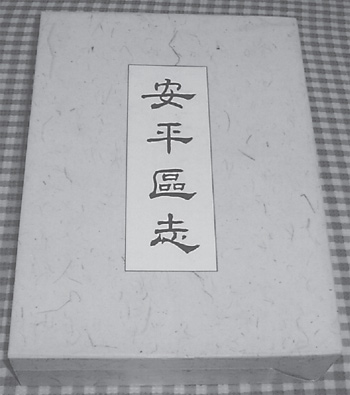 安平區志